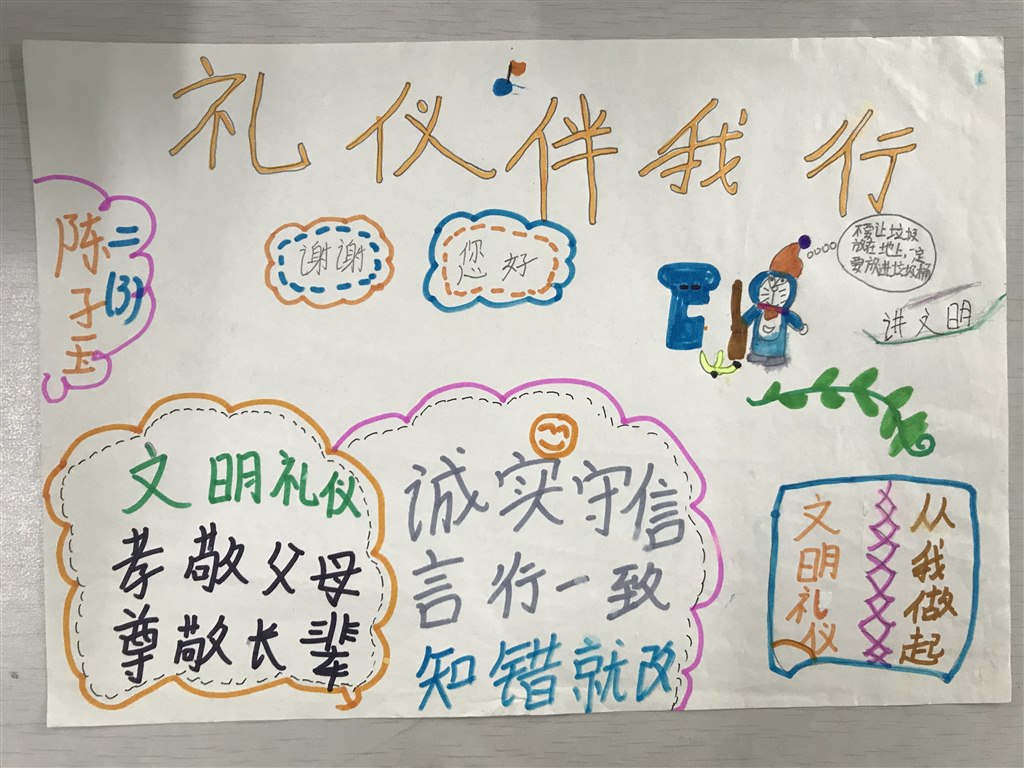 礼仪伴我行
陈子玉
二(3)
谢谢
您好
不要让垃圾
放在地上,一定
要放进垃圾桶
讲文明
文明礼仪
孝敬父母
尊敬长辈
诚实守信
言行一致
知错就改
文明礼仪
从我做起